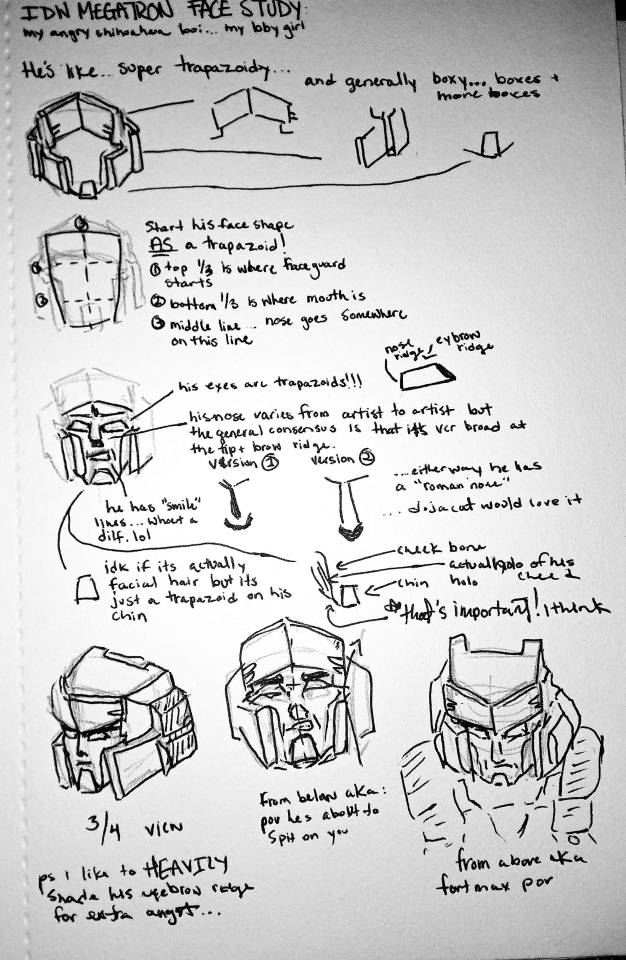 IDW MEGATRON FACE STUDY:
my angry chihuahua boi... my bby girl
He's like... super trapazoidy...
and generally boxy... boxes +
more boxes
Start his face shape
AS a trapazoid!
① top 1/3 is where faceguard
starts
② bottom 1/3 is where mouth is
③ middle line... nose goes somewhere
on this line
③
①
②
nose
ridge
eyebrow
ridge
his eyes are trapazoids!!!
his nose varies from artist to artist but
the general consensus is that it's ver broad at
the tip + brow ridge.
version ①
version ②
...either way he has
a "roman nose"
...dojacat would love it
he has "smile"
lines... what a
dilf. lol
idk if its actually
facial hair but its
just a trapazoid on his
chin
cheek bone
actual holo of his
holo cheek
chin
that's important! I think
3/4 view
From below aka:
pov hes about to
spit on you
from above aka
fortmax pov
ps i like to HEAVILY
shade his eyebrow ridge
for extra angst...